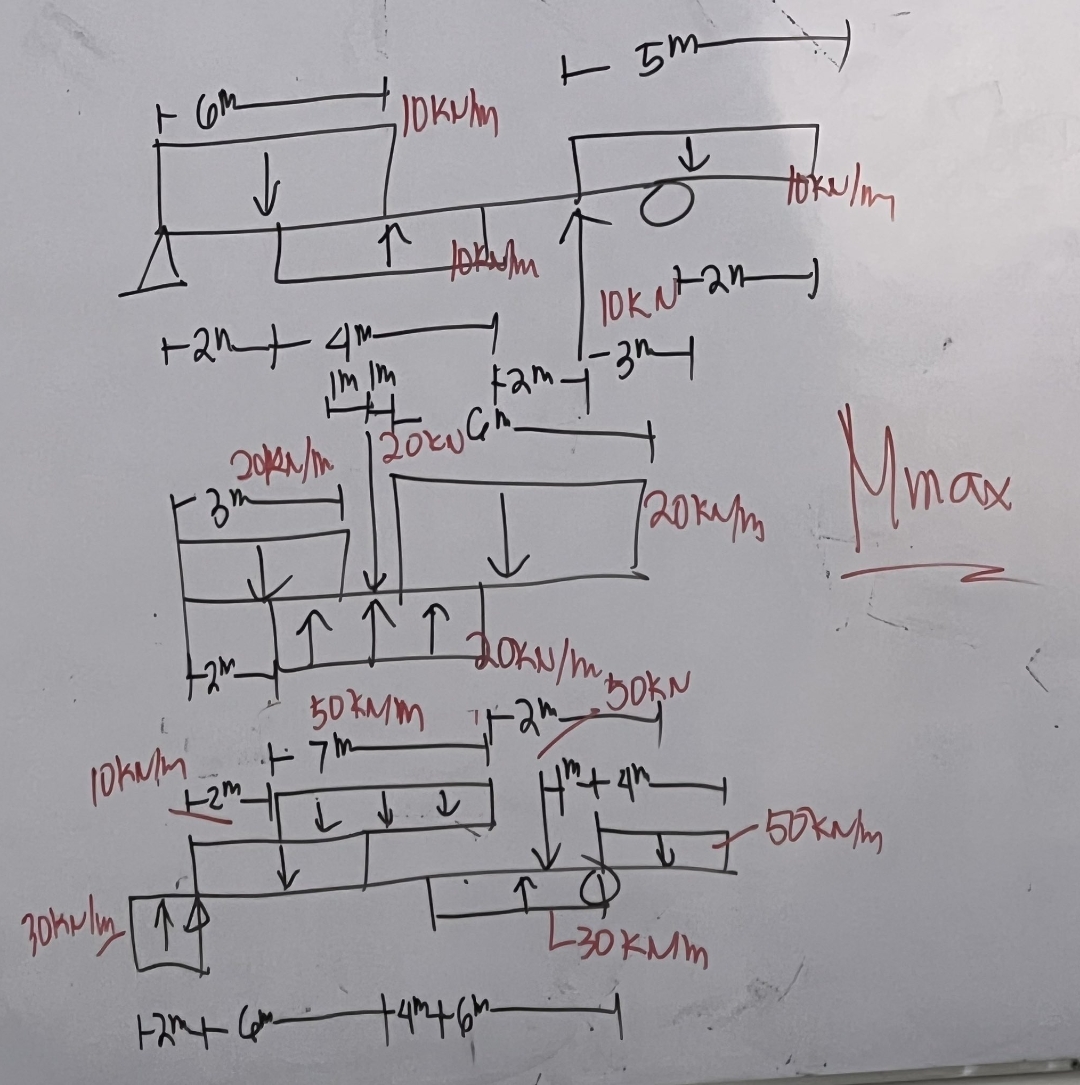 5m
6m 10KN/m
10KN/m
10KN/m
10KN 2m
2m 4m
3m
1m 1m 2m
20KN 6m
20KN/m
3m
20KN/m
Mmax
20KN/m
2m
50KN
50KN/m 2m
7m
10KN/m
2m 1m 4m
50KN/m
30KN/m
30KN/m
2m 6m 4m 6m